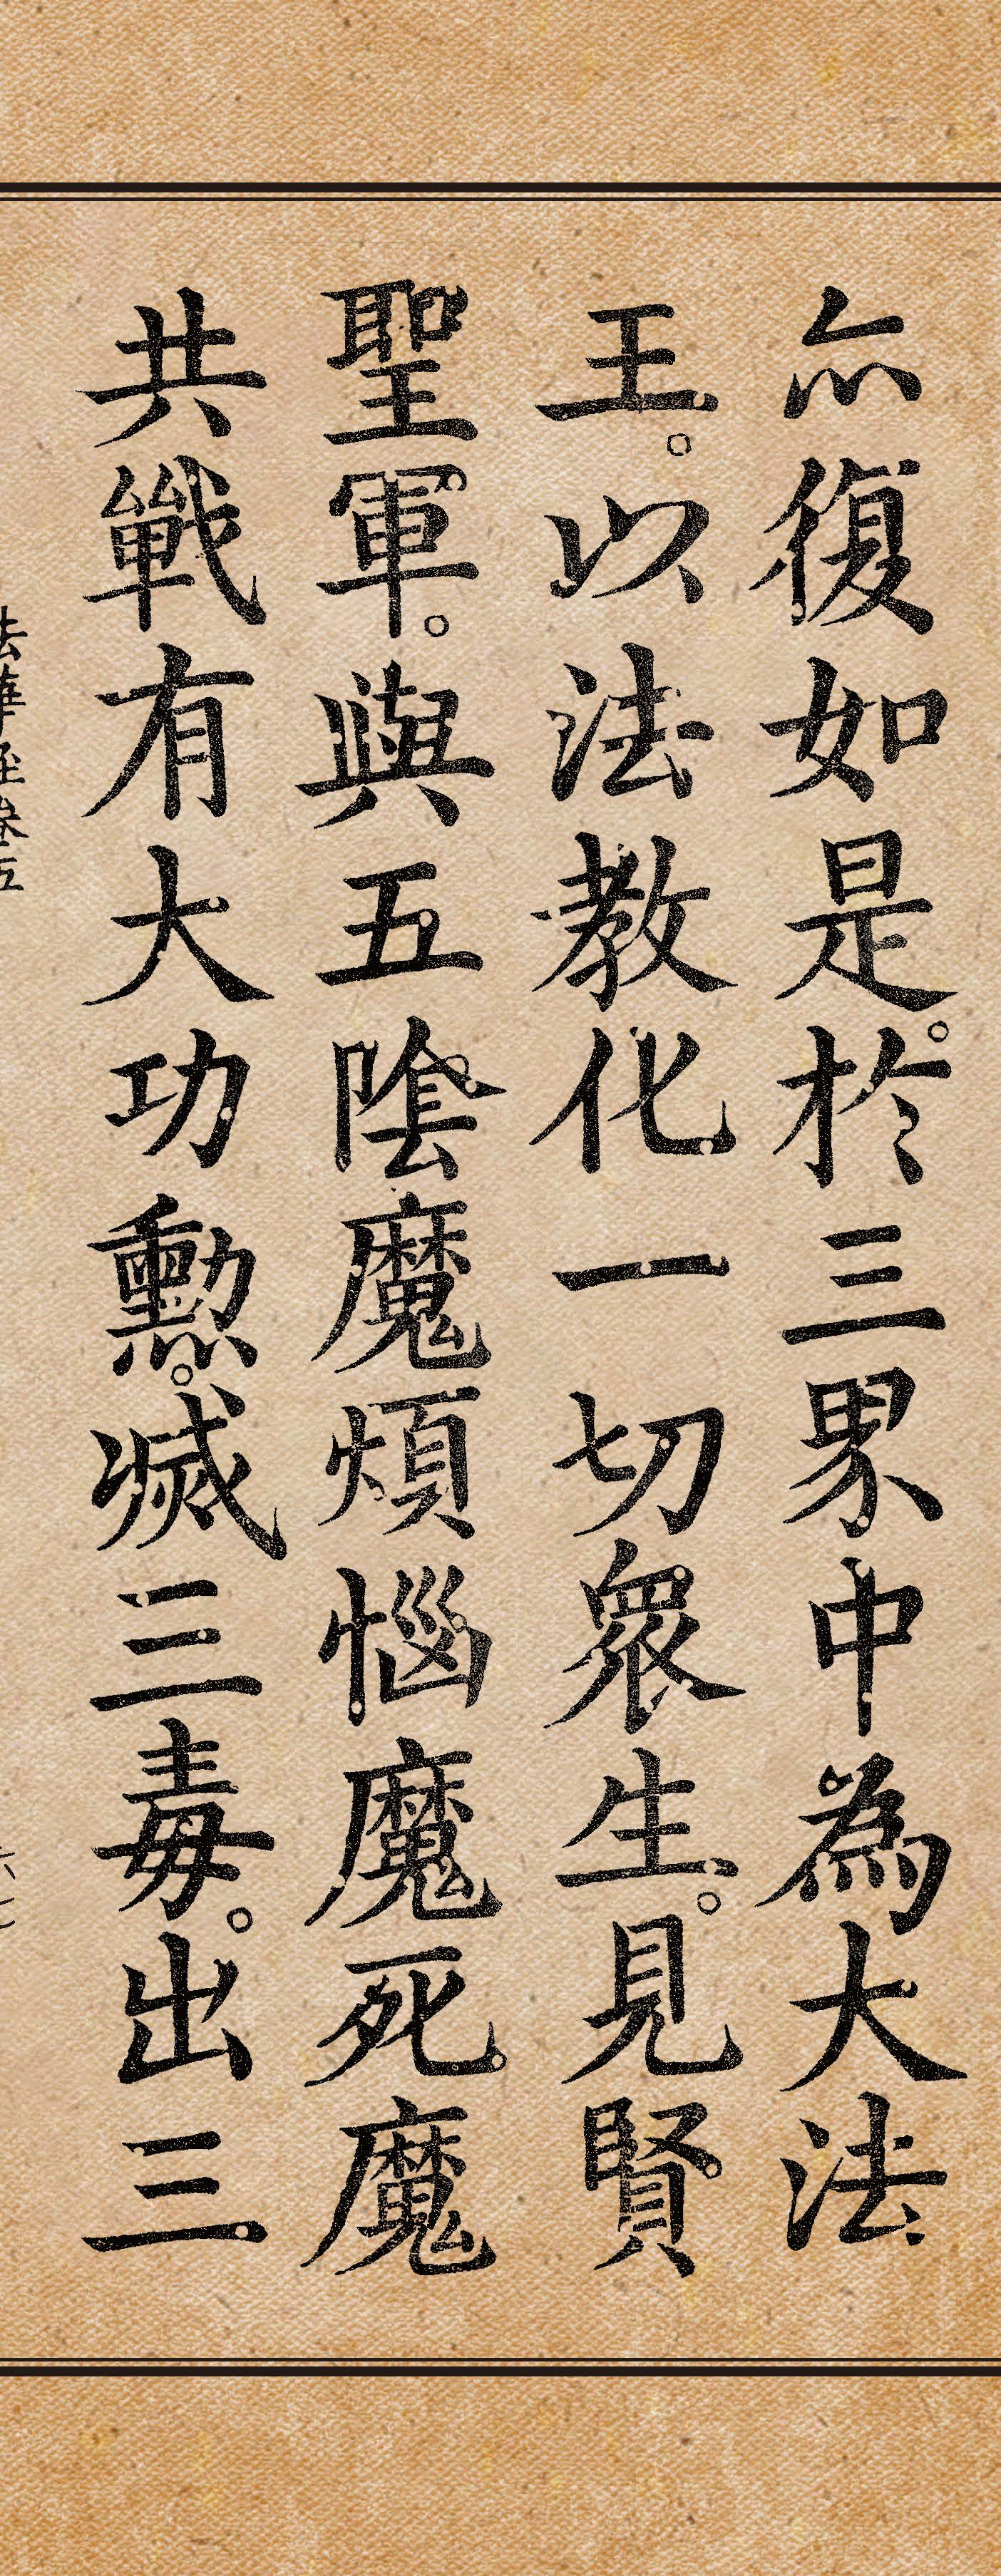 亦復如是。於三界中為大法
王。以法教化一切眾生。見賢
聖軍。與五陰魔煩惱魔死魔
共戰有大功勳。滅三毒。出三
法華經卷五
六七